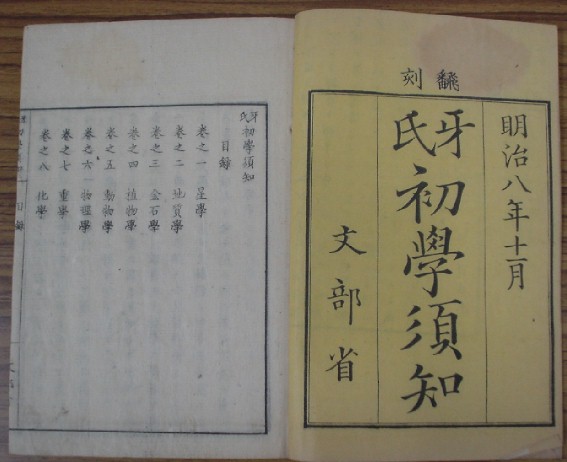 飜刻
明治八年十一月
牙氏初學須知
文部省
牙氏初學須知
目錄
卷之一 星學
卷之二 地質學
卷之三 金石學
卷之四 植物學
卷之五 動物學
卷之六 物理學
卷之七 重學
卷之八 化學
目錄